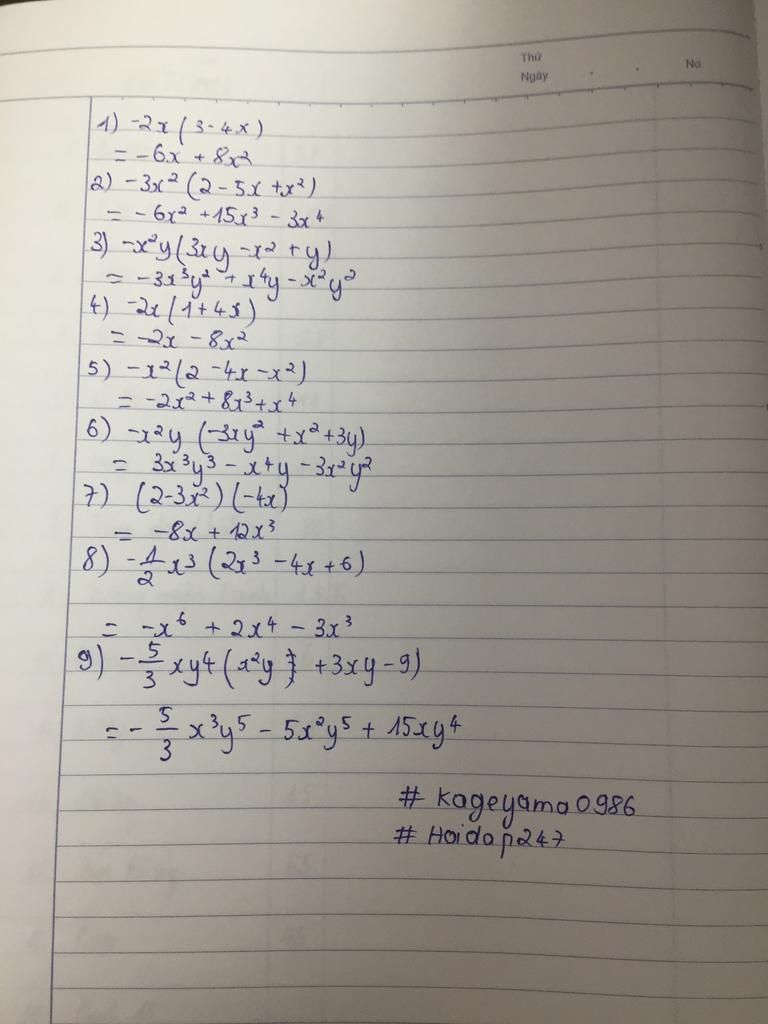 Thứ
Ngày
No.
1) -2x (3 - 4x)
= -6x + 8x²
2) -3x² (2 - 5x + x²)
= -6x² + 15x³ - 3x⁴
3) -x²y (3xy - x² + y)
= -3x³y² + x⁴y - x²y²
4) -2x (1 + 4x)
= -2x - 8x²
5) -x² (2 - 4x - x²)
= -2x² + 8x³ + x⁴
6) -x²y (-3xy² + x² + 3y)
= 3x³y³ - x⁴y - 3x²y²
7) (2 - 3x²) (-4x)
= -8x + 12x³
8) -1/2 x³ (2x³ - 4x + 6)
= -x⁶ + 2x⁴ - 3x³
9) -5/3 xy⁴ (x²y + 3xy - 9)
= -5/3 x³y⁵ - 5x²y⁵ + 15xy⁴
# Kageyama0986
# Hoidap247